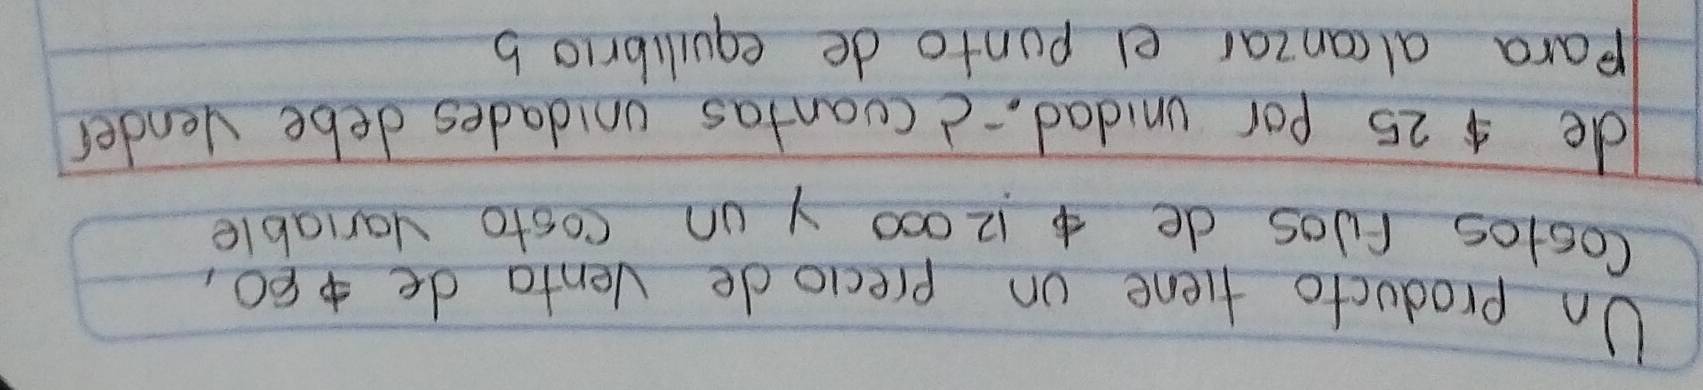 Un producto tiene un precio de venta de $80,
costos fijos de $ 12 000 y un costo variable
de $ 25 por unidad.- ¿cuantas unidades debe vender
para alcanzar el punto de equilibrio ?